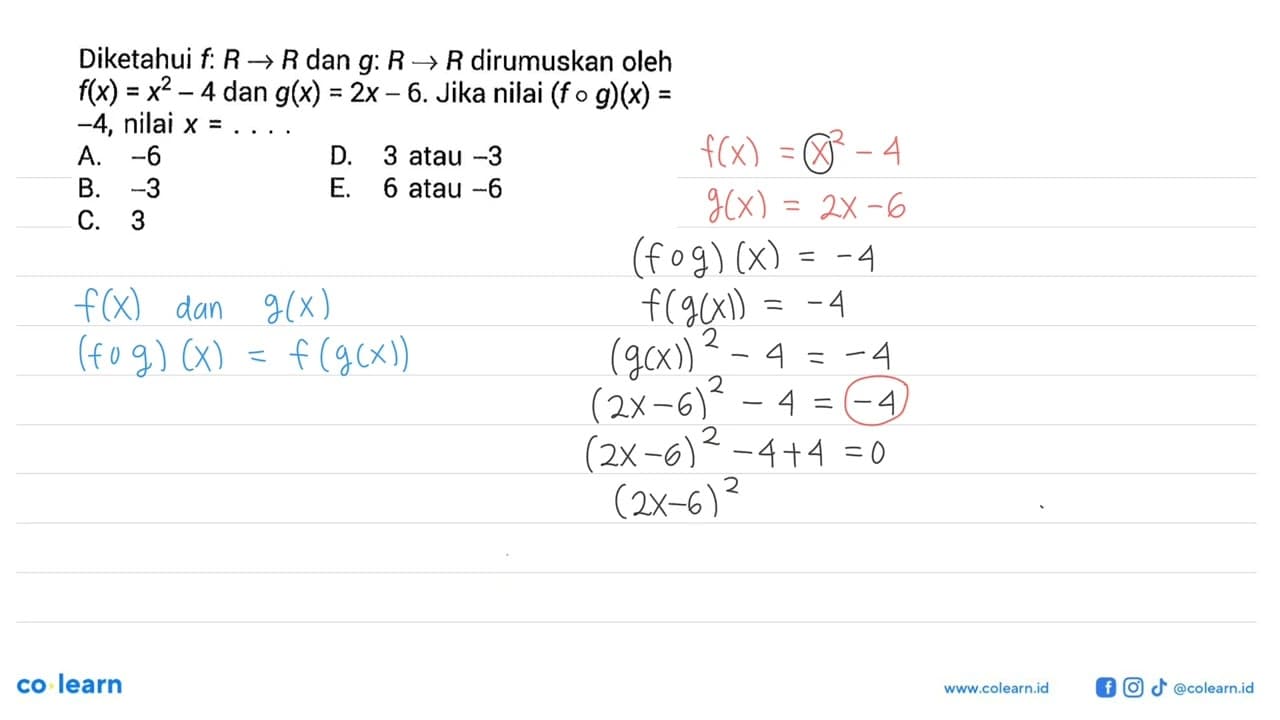 Diketahui f: R → R dan g: R → R dirumuskan oleh
f(x) = x² – 4 dan g(x) = 2x – 6. Jika nilai (f ∘ g)(x) =
–4, nilai x = . . . .
A. –6
B. –3
C. 3
D. 3 atau –3
E. 6 atau –6
f(x) dan g(x)
(f∘g)(x) = f(g(x))
f(x) = x² – 4
g(x) = 2x – 6
(f∘g)(x) = –4
f(g(x)) = –4
(g(x))² – 4 = –4
(2x–6)² – 4 = –4
(2x–6)² – 4 + 4 = 0
(2x–6)²
co·learn
www.colearn.id
@colearn.id